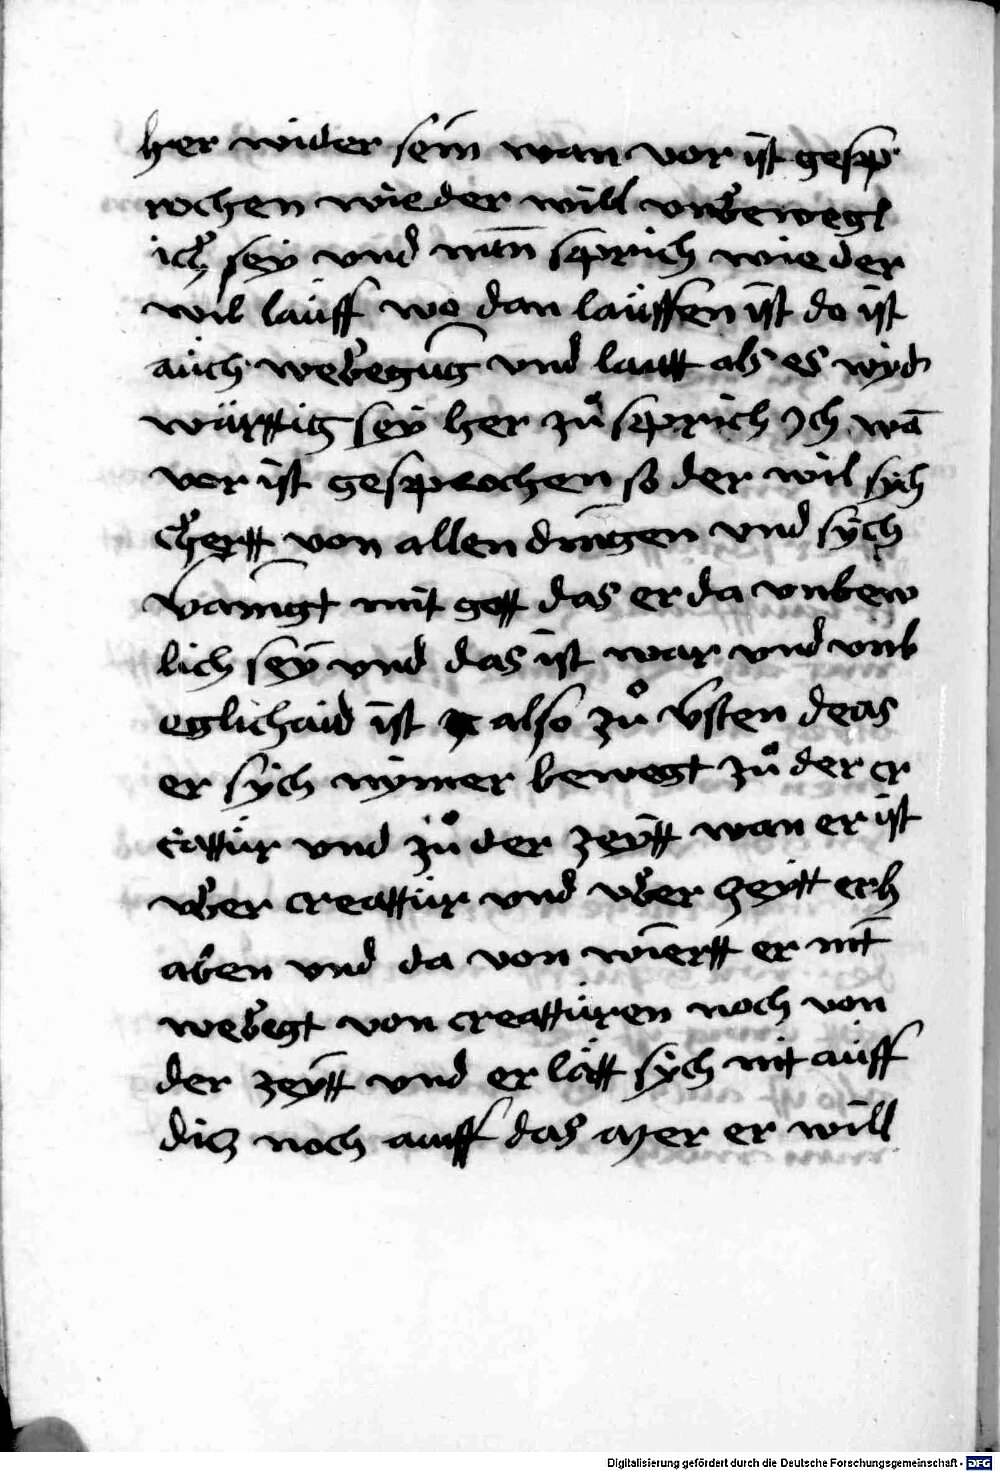 her wider sein wan vor ist gespp
rochen wie der will vnbewegl
ich sey vnd man sprich wie der
wil lauff wo dan lauffen ist do ist
auch webegung vnd lautt als es wyd
wärttig sey her zů sprich Ich wā
vor ist gesprochen so der wil sych
chertt von allen dingen vnd sych
veraingt mit gott das er da vnbew
lich sey vnd das ist war vnd vnb
eglichaid ist also zů versten deas
er sych nymer bewegt zů der cr
eattur vnd zů der zeytt wan er ist
vber creattur vnd vber zeytt erh
aben vnd da von wiertt er nit
webegt von creatturen noch von
der zeytt vnd er lätt sych nit auff
diz noch auff das azer er will
Digitalisierung gefördert durch die Deutsche Forschungsgemeinschaft - DFG